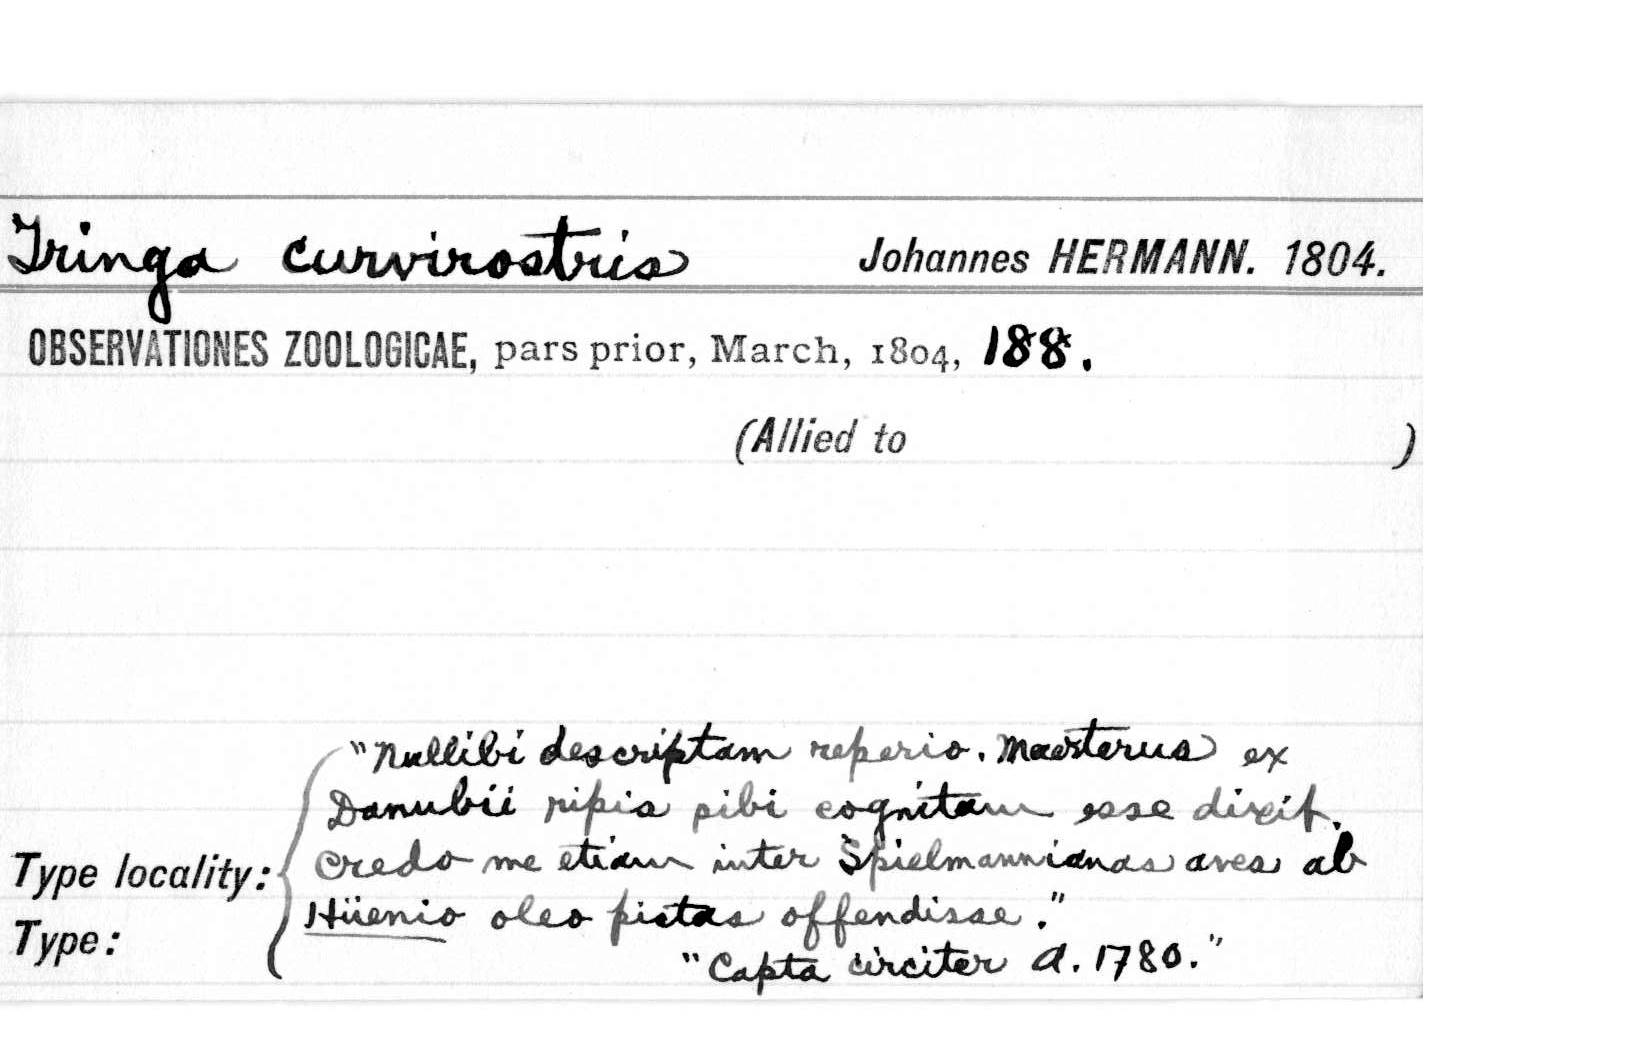 Tringa curvirostris Johannes HERMANN. 1804.
OBSERVATIONES ZOOLOGICAE, pars prior, March, 1804, 188.
(Allied to )
"Nullibi descriptam reperio. Maesterus ex
Danubii ripis sibi cognitam esse dixit.
Type locality: credo me etiam inter Spielmannianas aves ab
Hüenio oleo pictas offendisse."
Type:
"Capta circiter A. 1780."